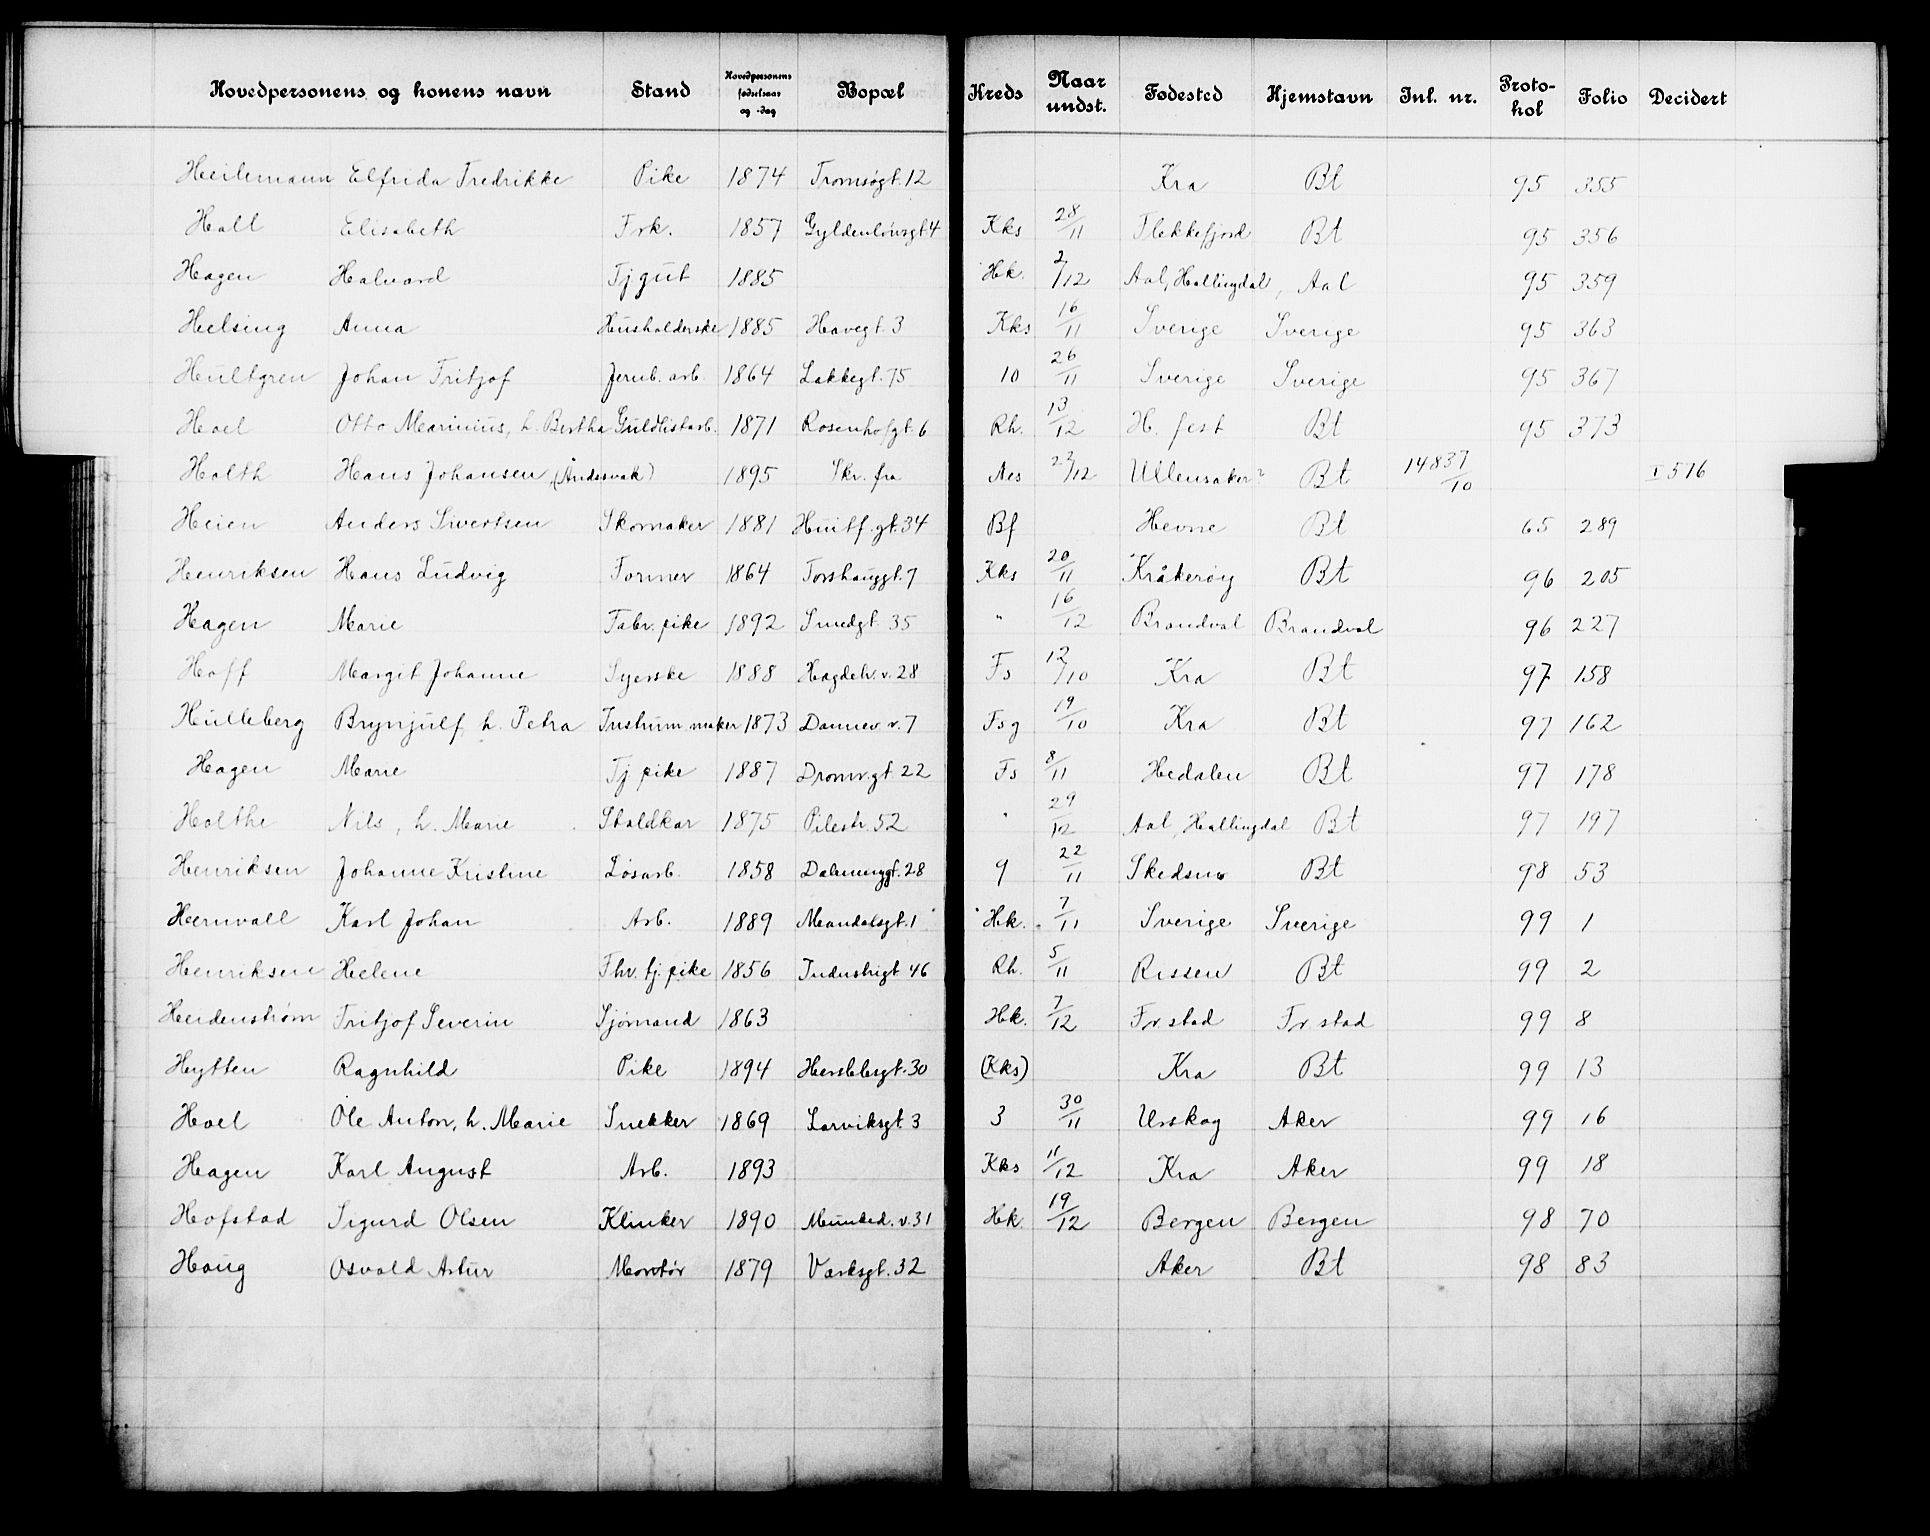 Hovedpersonens og konens navn Stand Hovedpersonens fødselsaar og -dag Bopæl Kreds Naar undst. Fødested Hjemstavn Inl. nr. Protokol Folio Decidert
Heilemann Elfrida Fredrikke Pike 1874 Tromsøgt. 12 Kra Bt 95 355
Hall Elisabeth Frk. 1857 Gyldenløvsgt. 4 Kks 28/11 Flekkefjord Bt 95 356
Hagen Halvard Tjgut 1885 Hk. 2/12 Aal, Hallingdal, Aal 95 359
Helsing Anna Husholderske 1885 Havegt. 3 Kks 16/11 Sverige Sverige 95 363
Hultgren Johan Fritjof Jernb. arb. 1864 Lakkegt. 75 10 26/11 Sverige Sverige 95 367
Hoel Otto Marinius, h. Bertha Guldlistarb. 1871 Rosenhofgt. 6 Rh. 13/12 H. fest Bt 95 373
Holth Hans Johansen, 1895 Skr. fra Aes 22/12 Ullensaker? Bt 14837/10 I 576
Heien Anders Sivertsen Skomaker 1881 Huitf. gt. 34 Bf Hevne Bt 65 289
Henriksen Hans Ludvig Former 1864 Torshauggt. 7 Kks 20/11 Kråkerøy Bt 96 205
Hagen Marie Fabr. pike 1892 Smedgt. 35 " 16/12 Brandval Brandval 96 227
Hoff Margit Johanne Syerske 1888 Hagdehv. v. 28 Fs 12/10 Kra Bt 97 158
Hulleberg Brynjulf h. Petra Instrum. maker 1873 Dannev. v. 7 Fsg 19/10 Kra Bt 97 162
Hagen Marie Tj pike 1887 Dronn.gt. 22 Fs 8/11 Hedalen Bt 97 178
Holthe Nils, h. Marie Staldkar 1875 Pilestr. 52 " 29/12 Aal, Hallingdal Bt 97 197
Henriksen Johanne Kristine Løsarb. 1858 Dalenenggt. 28 9 22/11 Skedsmo Bt 98 53
Hernvall Karl Johan Arb. 1889 Mandalsgt. 1 Hk. 7/11 Sverige Sverige 99 1
Henriksen Helene Fhv. tj. pike 1856 Industrigt 46 Rh. 5/11 Rissen Bt 99 2
Heidenstrøm Fritjof Severin Sjømand 1863 Hk. 7/12 Fr. stad Fr. stad 99 8
Hytten Ragnhild Pike 1894 Herslebsgt. 30 (Kks) Kra Bt 99 13
Hoel Ole Anton, h. Marie Snekker 1869 Larviksgt. 3 3 30/11 Urskog Aker 99 16
Hagen Karl August Arb. 1893 Kks 11/12 Kra Aker 99 18
Hofstad Sigurd Olsen Klinker 1890 Munked. v. 31 Hk. 19/12 Bergen Bergen 98 70
Haug Osvald Artur Montør 1879 Varksgt. 32 Aker Bt 98 83